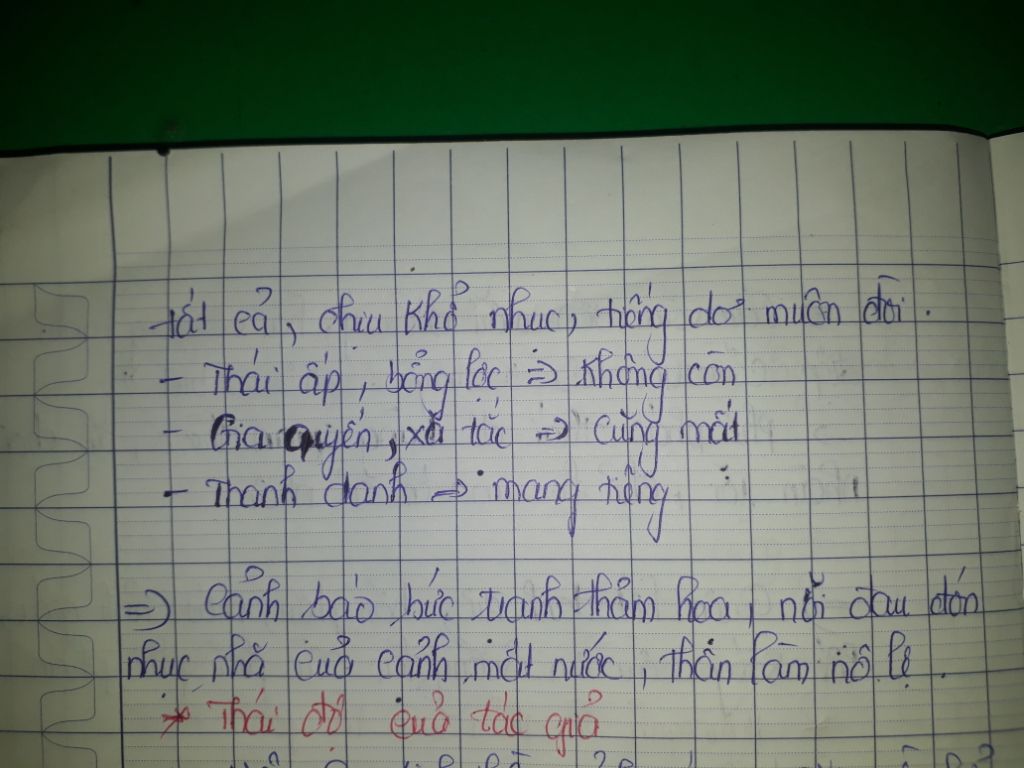 tất cả, chịu khổ nhục, tiếng dơ muôn đời.
- Thái ấp, bổng lộc => không còn
- Gia quyến, xã tắc => cũng mất
- Thanh danh => mang tiếng
=> Cảnh báo bức tranh thảm họa, nỗi đau đớn
nhục nhã của cảnh mất nước, thân làm nô lệ.
* Thái độ của tác giả